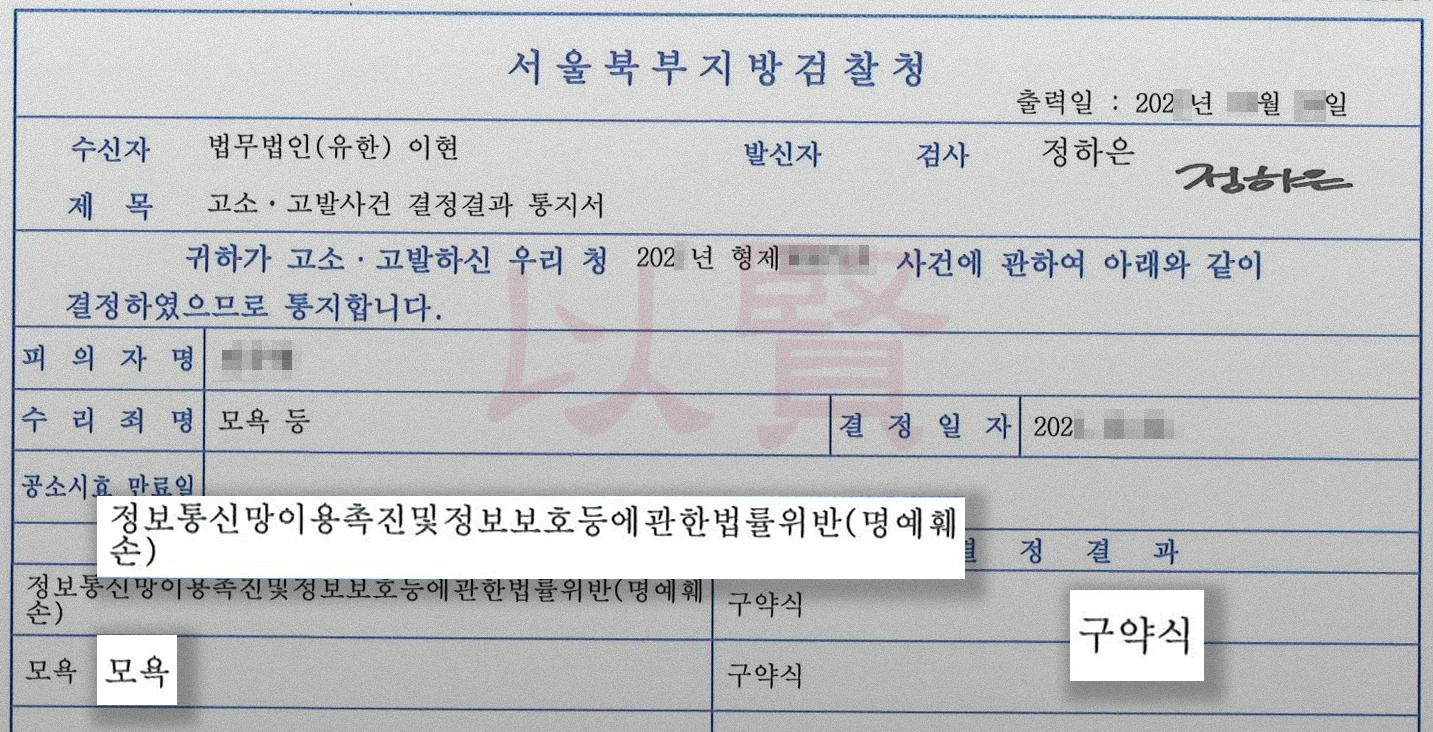 서울북부지방검찰청
출력일 : 202 년 월 일
수신자 법무법인(유한) 이현 발신자 검사 정하은 정하은
제 목 고소·고발사건 결정결과 통지서
귀하가 고소·고발하신 우리 청 202 년 형제 사건에 관하여 아래와 같이
결정하였으므로 통지합니다.
以賢
피 의 자 명
수 리 죄 명 모욕 등 결 정 일 자 202 . . .
공소시효 만료일
정보통신망이용촉진및정보보호등에관한법률위반(명예훼
손)
결 정 결 과
정보통신망이용촉진및정보보호등에관한법률위반(명예훼
손)
구약식
구약식
모욕 모욕 구약식